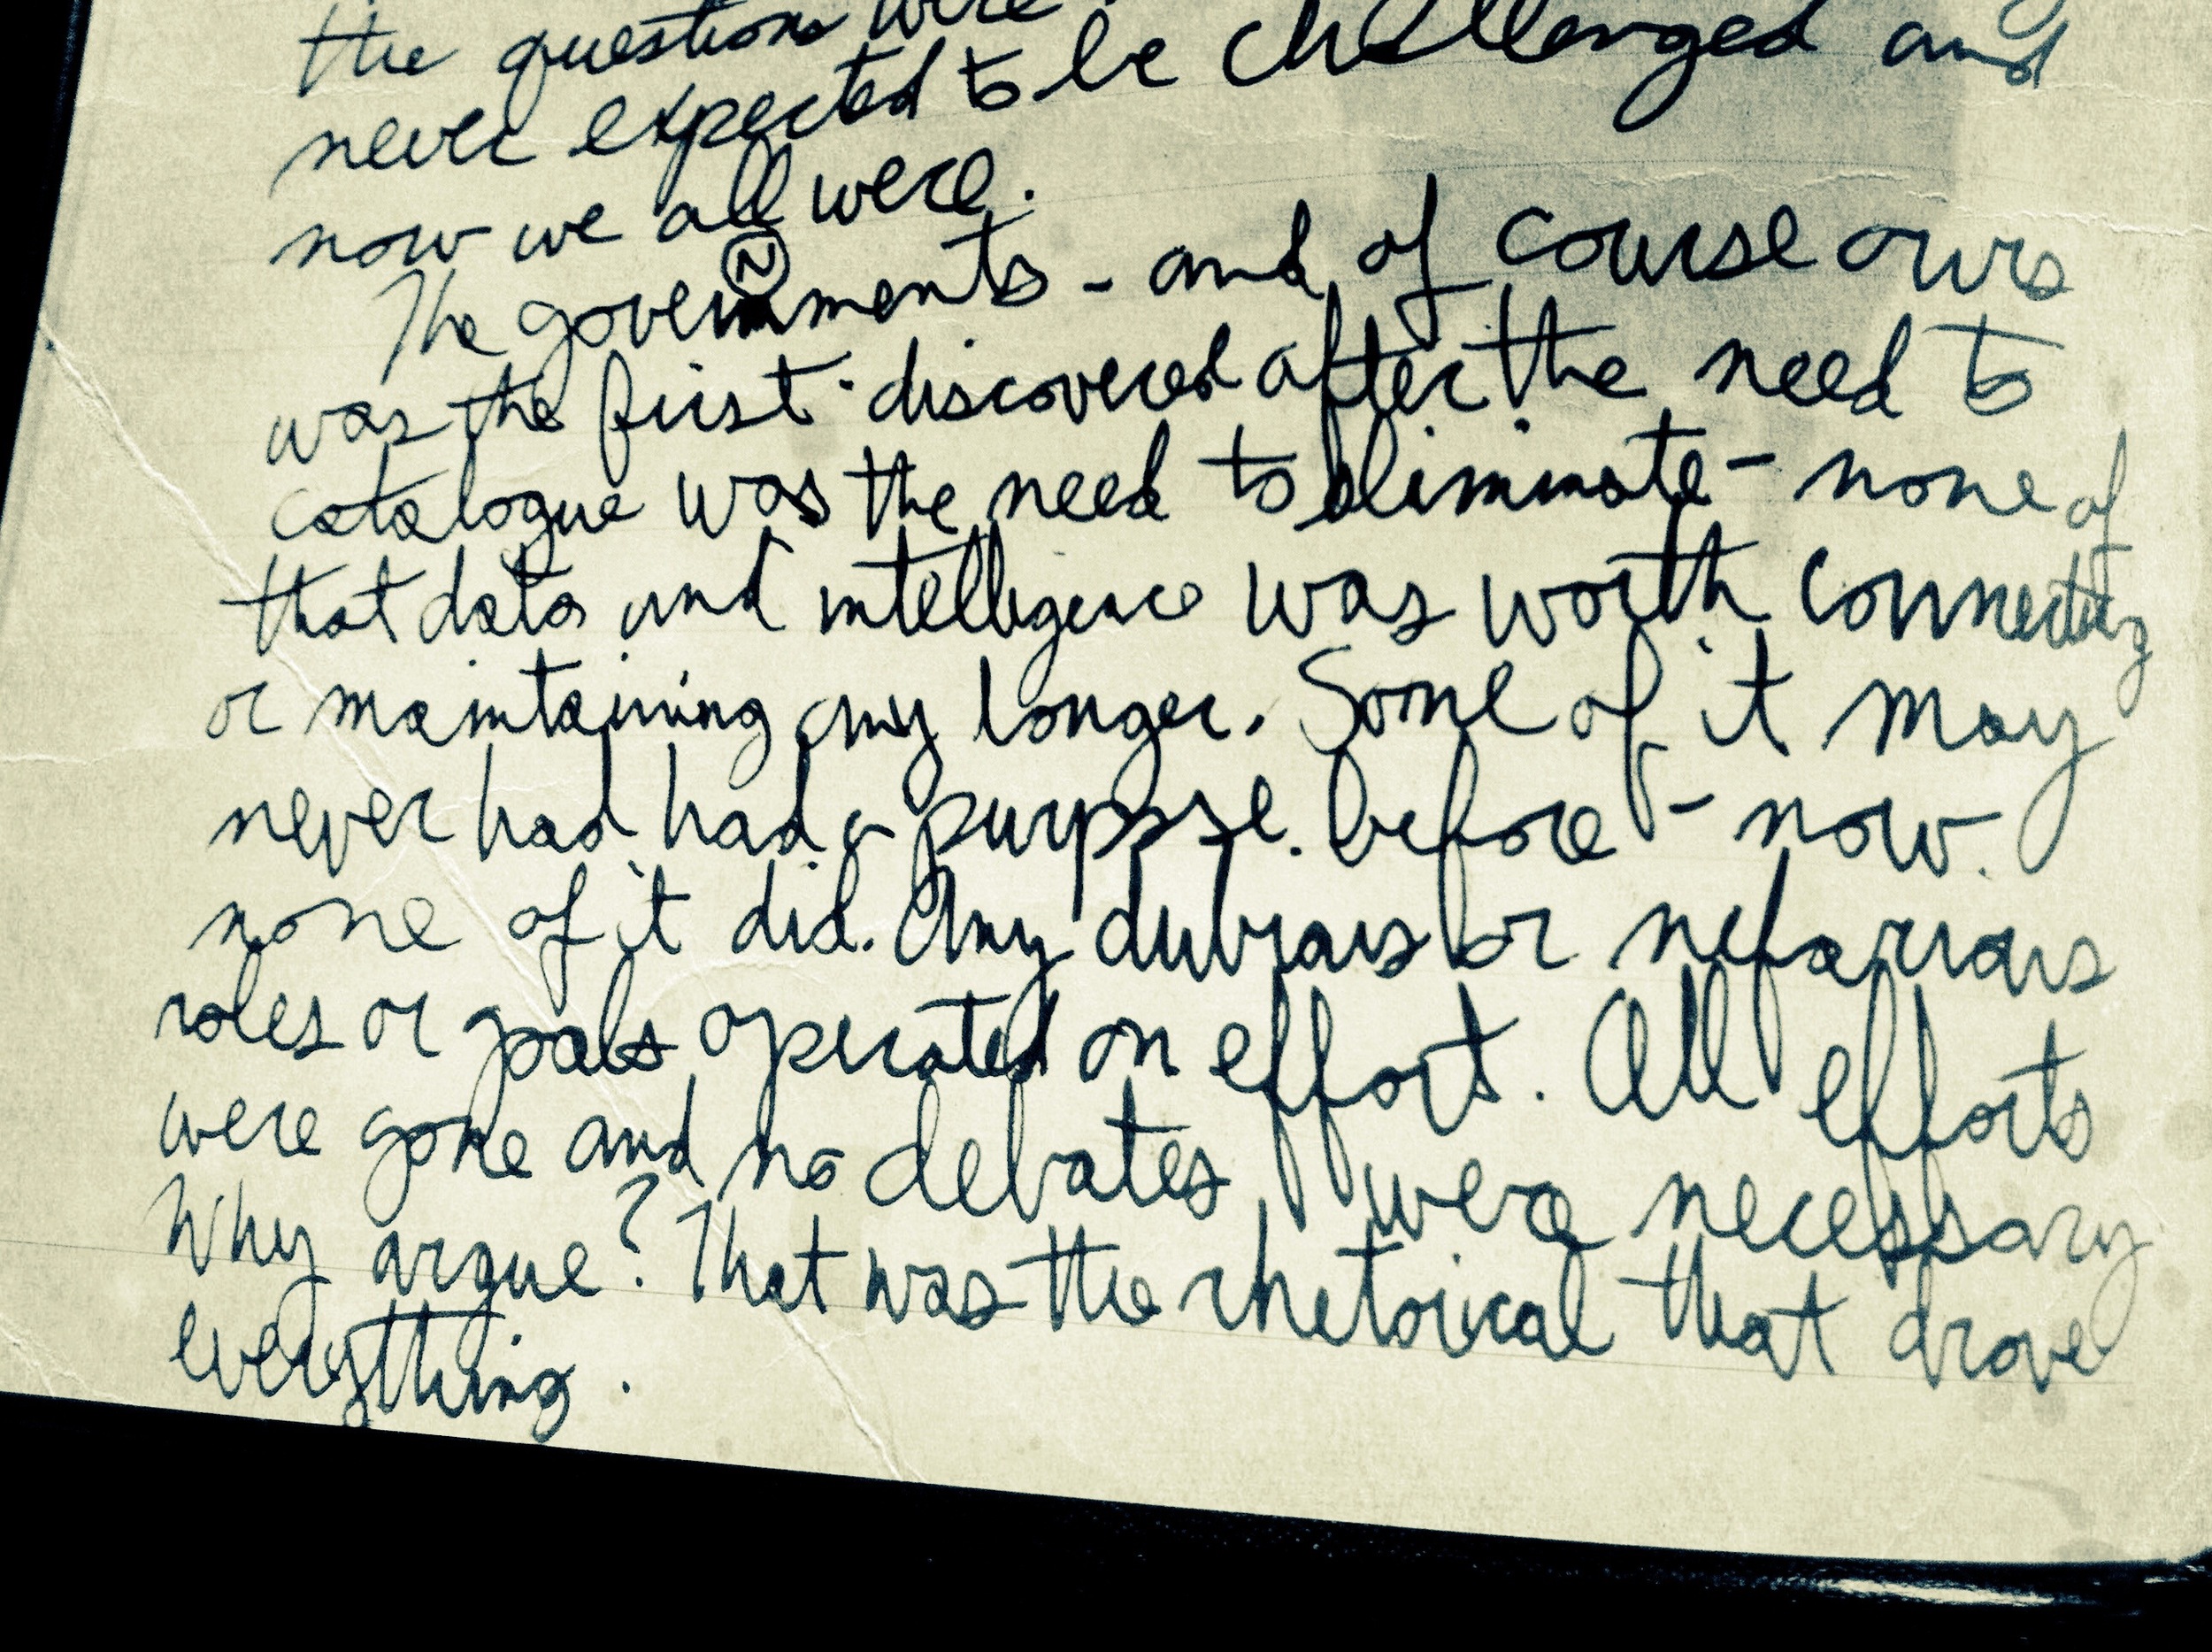 the questions were
never expected to be challenged and
now we all were.
The governments - and of course ours
was the first - discovered after the need to
catalogue was the need to eliminate - none of
that data and intelligence was worth connecting
or maintaining any longer. Some of it may
never had had a purpose. before - now.
none of it did. Any dubious or nefarious
roles or goals operated on effort. All efforts
were gone and no debates were necessary
Why argue? That was the rhetorical that drove
everything.